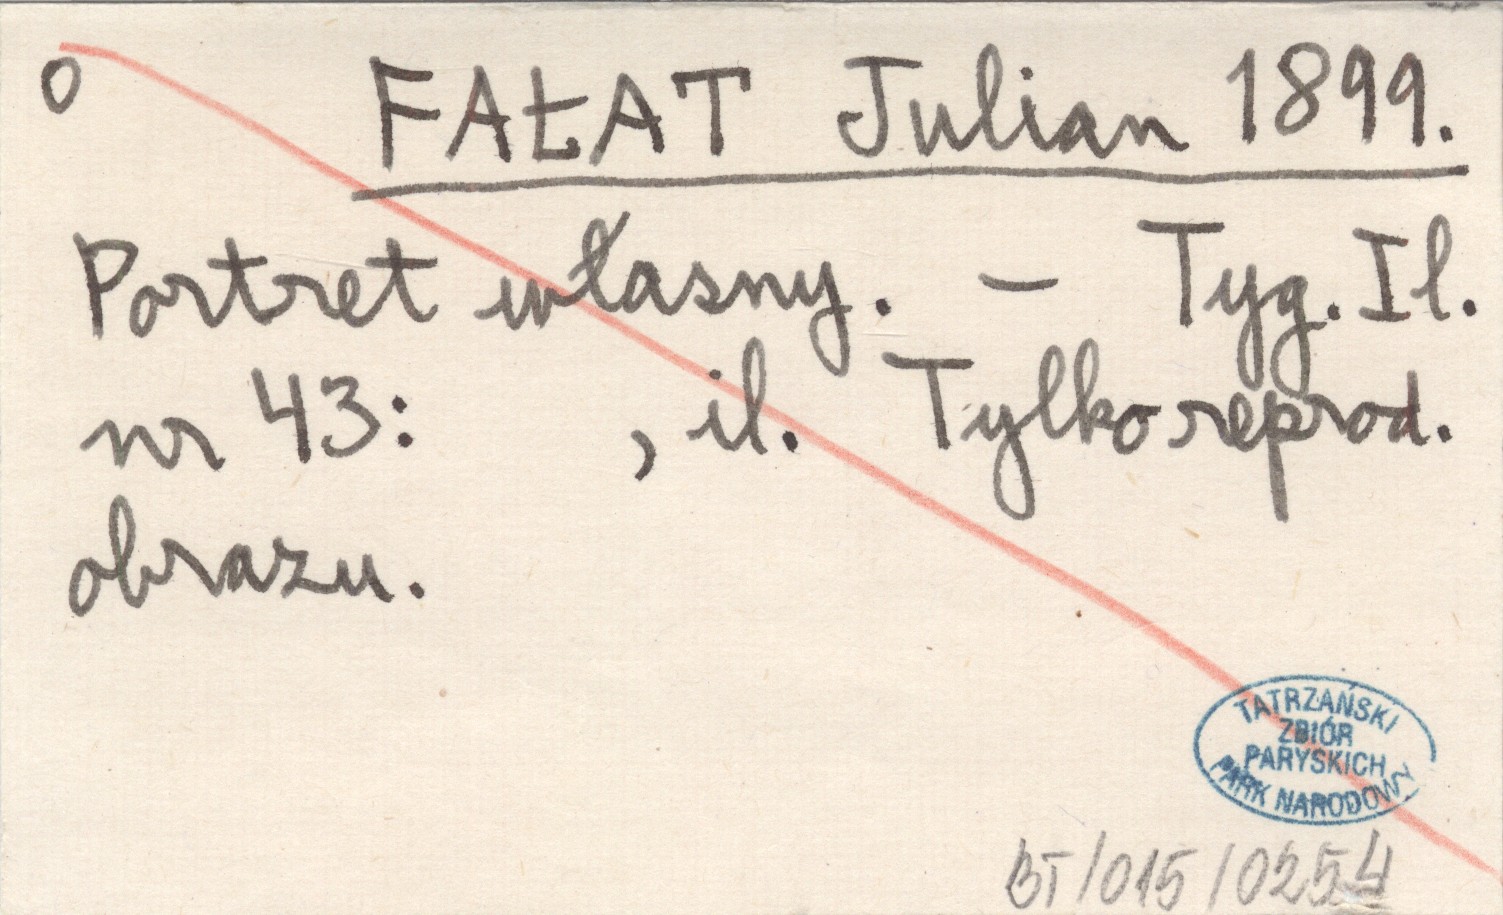 O
FAŁAT Julian 1899.
Portret własny. – Tyg. Il.
nr 43: , il. Tylko reprod.
obrazu.
TATRZAŃSKI
ZBIÓR
PARYSKICH
PARK NARODOWY
BT/015/0254